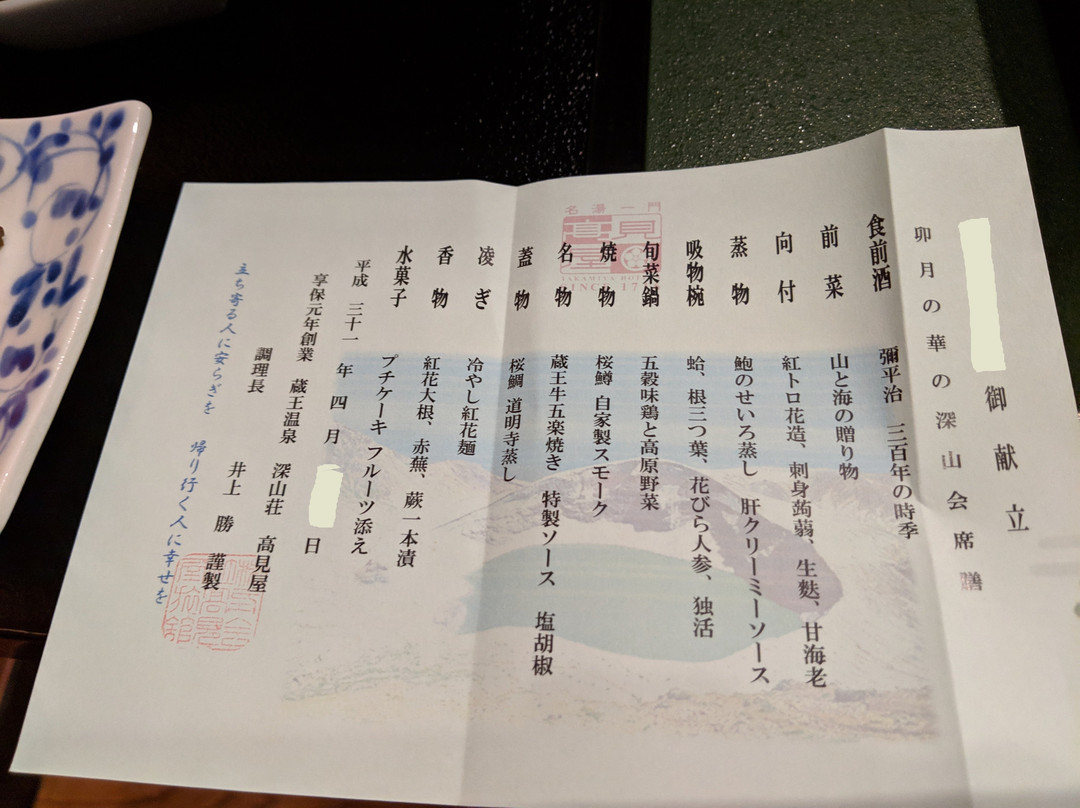 御献立
卯月の華の深山会席膳
食前酒 彌平治 三百年の時季
前菜 山と海の贈り物
向付 紅トロ花造、刺身蒟蒻、生麩、甘海老
蒸物 鮑のせいろ蒸し 肝クリーミーソース
吸物椀 蛤、根三つ葉、花びら人参、独活
旬菜鍋 五穀味鶏と高原野菜
焼物 桜鱒 自家製スモーク
名物 蔵王牛五楽焼き 特製ソース 塩胡椒
蓋物 桜鯛 道明寺蒸し
凌ぎ 冷やし紅花麺
香物 紅花大根、赤蕪、蕨一本漬
水菓子 プチケーキ フルーツ添え
平成 三十一 年 四 月 日
享保元年創業 蔵王温泉 深山荘 高見屋
調理長 井上 勝 謹製
立ち寄る人に安らぎを 帰り行く人に幸せを
名湯一門
高見屋